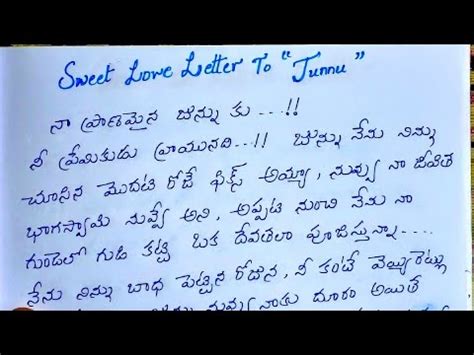 Sweet Love Letter To "Junnu"
నా ప్రాణమైన జున్ను కు ----!!
నీ ప్రేమికుడు వ్రాయునది...!! జున్ను నేను నిన్ను
చూసిన మొదటి రోజే ఫిక్స్ అయ్యా, నువ్వు నా జీవిత
భాగస్వామి నువ్వే అని, అప్పటి నుంచి నేను నా
గుండెలో గుడి కట్టి ఒక దేవతలా పూజిస్తున్నా....
నేను నిన్ను బాధ పెట్టిన రోజున, నీ కంటే వెయ్యిరెట్లు
నువ్వు నాకు దూరం అయితే